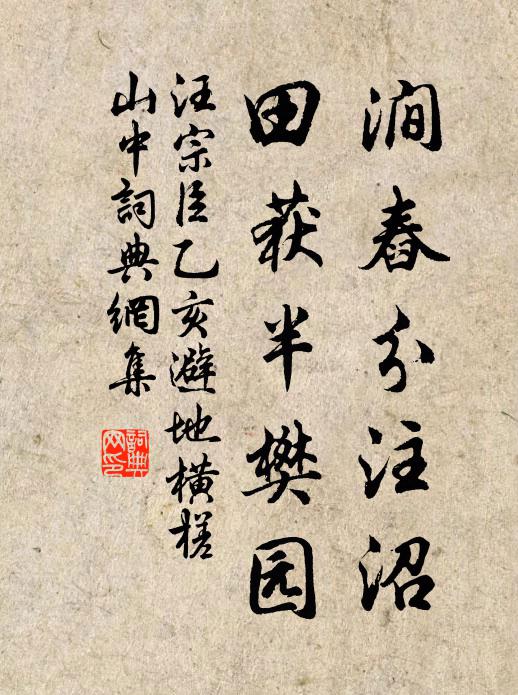 涧舂分注沼
田获半樊园
汪宗臣乙亥避地横槎
山中詞典網集
詞典网印